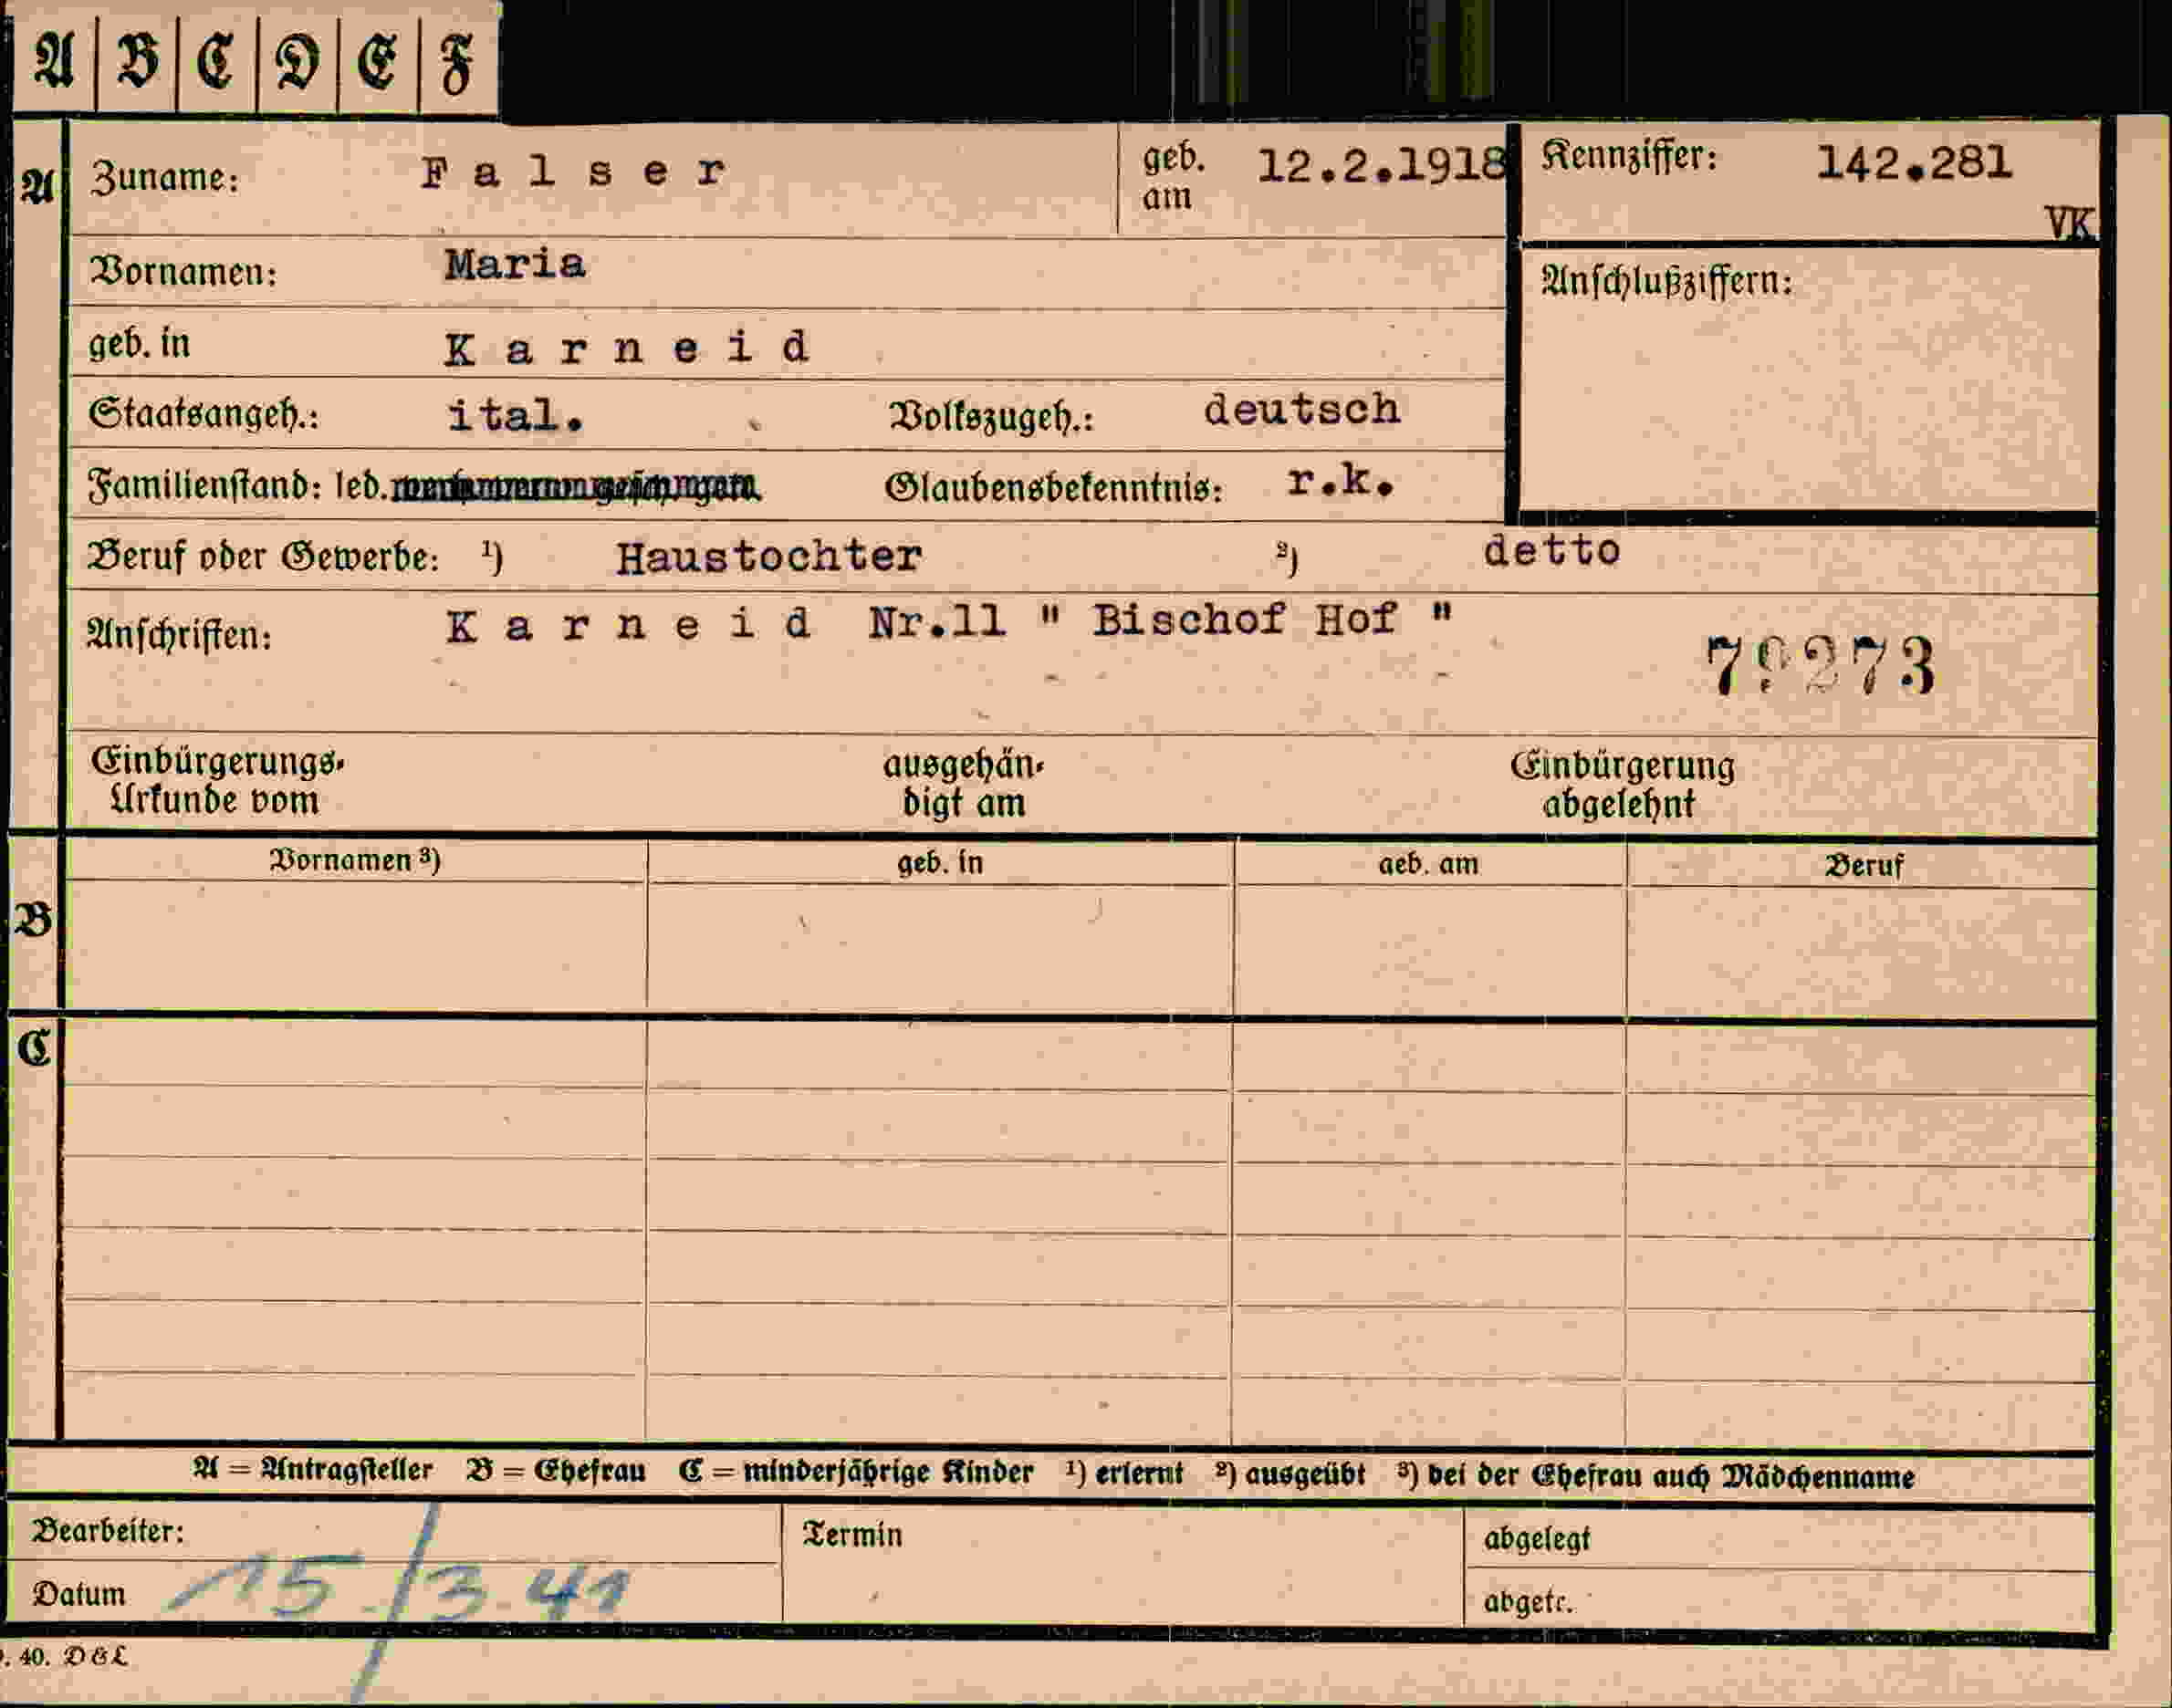 A B C D E F
A Zuname: Falser geb. am 12.2.1918 Kennziffer: 142.281
VK
Vornamen: Maria Anschlußziffern:
geb. in Karneid
Staatsangeh.: ital. Volkszugeh.: deutsch
Familienstand: led. Glaubensbekenntnis: r.k.
Beruf oder Gewerbe: ¹) Haustochter ²) detto
Anschriften: Karneid Nr.11 " Bischof Hof "
Einbürgerungs- Urkunde vom ausgehän- digt am Einbürgerung abgelehnt
Vornamen ³) geb. in geb. am Beruf
B
C
A = Antragsteller B = Ehefrau C = minderjährige Kinder ¹) erlernt ²) ausgeübt ³) bei der Ehefrau auch Mädchenname
Bearbeiter: Termin abgelegt
Datum 15./3.41 abgetr.
. 40. D&L